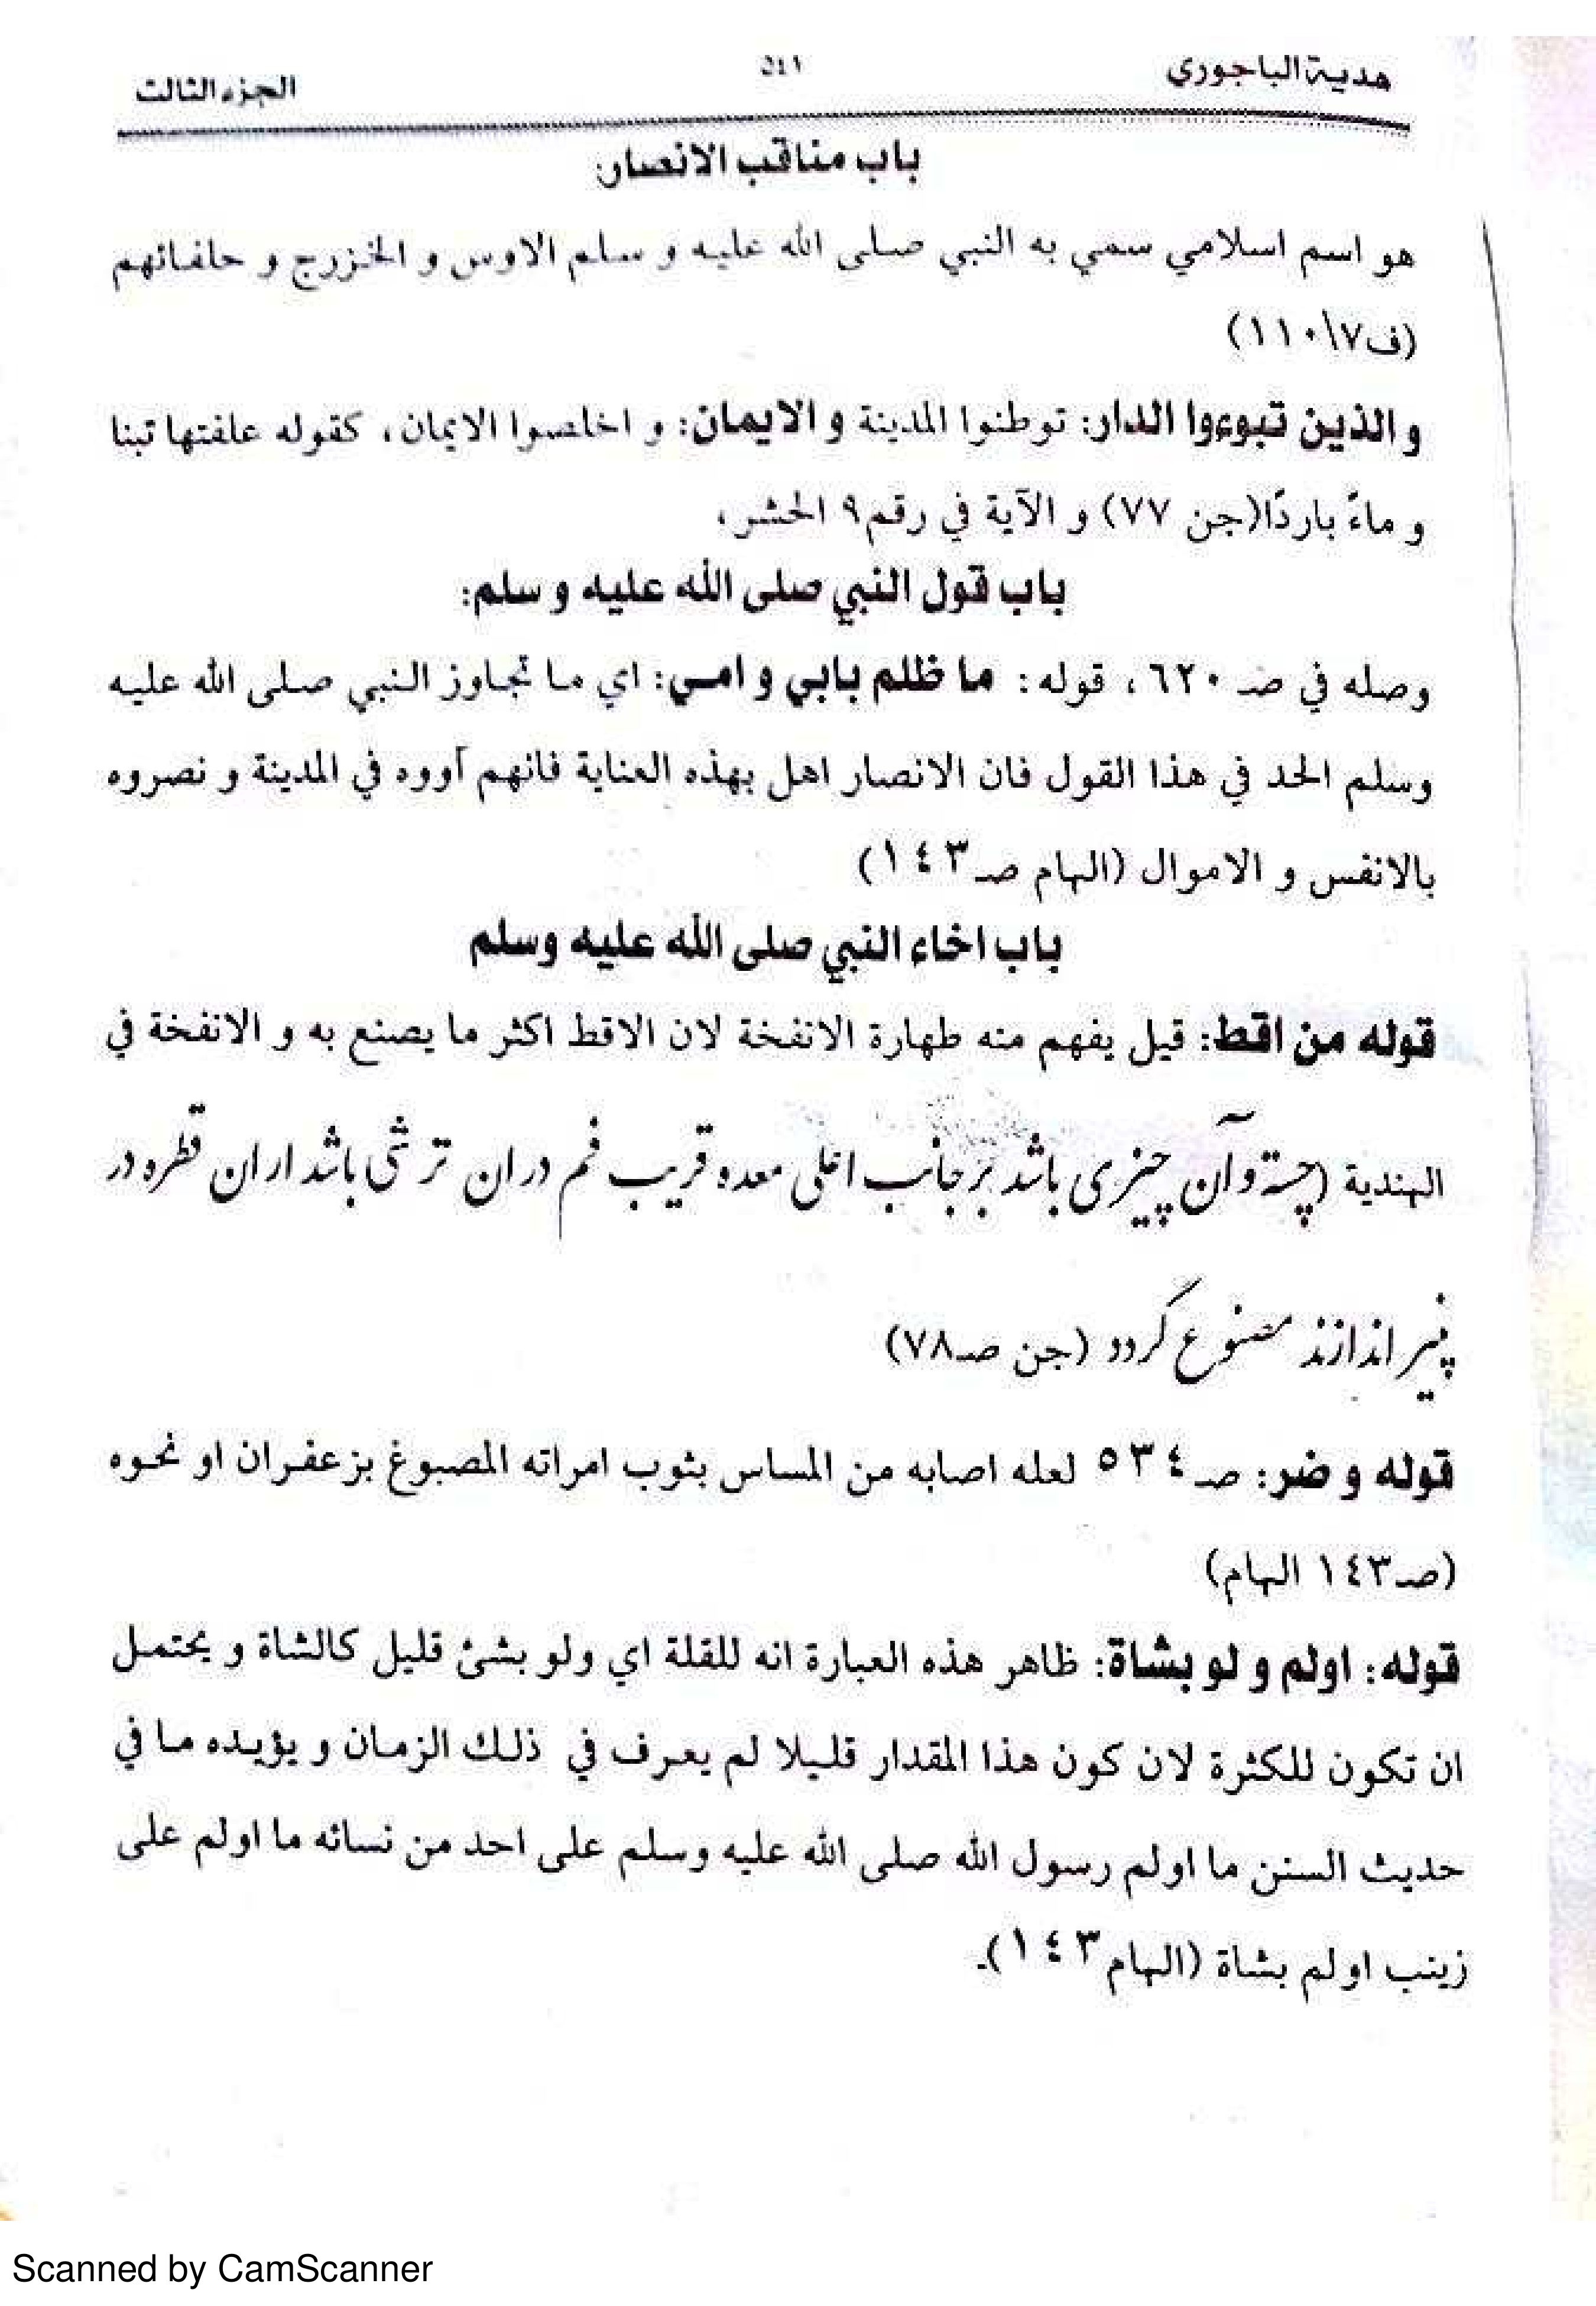 هدية الباجوري ٥٤١ الجزء الثالث
باب مناقب الانصار:
هو اسم اسلامي سمي به النبي صلى الله عليه و سلم الاوس و الخزرج و حلفائهم
(ف٧\١١٠)
و الذين تبوءوا الدار: توطنوا المدينة و الايمان: و اخلصوا الايمان، كقوله علفتها تبنا
و ماءً باردًا(جن ٧٧) و الآية في رقم٩ الحشر،
باب قول النبي صلى الله عليه و سلم:
وصله في صـ ٦٢٠، قوله: ما ظلم بابي و امي: اي ما تجاوز النبي صلى الله عليه
وسلم الحد في هذا القول فان الانصار اهل بهذه العناية فانهم آووه في المدينة و نصروه
بالانفس و الاموال (الهام صـ١٤٣)
باب اخاء النبي صلى الله عليه وسلم
قوله من اقط: قيل يفهم منه طهارة الانفخة لان الاقط اكثر ما يصنع به و الانفخة في
الهندية (چستہ وآن چیزی باشد بر جانب اعلی معده قریب فم دران ترشی باشد اران قطره در
پنیر اندازند مصنوع گردد (جن صـ٧٨)
قوله و ضر: صـ٥٣٤ لعله اصابه من المساس بثوب امراته المصبوغ بزعفران او نحوه
(صـ١٤٣ الهام)
قوله: اولم و لو بشاة: ظاهر هذه العبارة انه للقلة اي ولو بشئ قليل كالشاة و يحتمل
ان تكون للكثرة لان كون هذا المقدار قليلا لم يعرف في ذلك الزمان و يؤيده ما في
حديث السنن ما اولم رسول الله صلى الله عليه وسلم على احد من نسائه ما اولم على
زينب اولم بشاة (الهام١٤٣).
Scanned by CamScanner